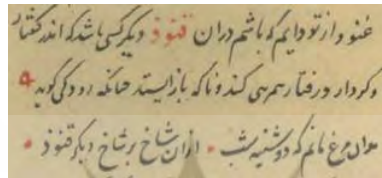 غنو و از تو دایم که باشم دران فنوذ دیکر کسی باشد که اندر کفتار
و کردار و رفتار سرسری کند و ناکه باز ایستد جنانکه رودکی کوید
بدان مرغ مانم که دوشینه شب ازان شاخ بر شاخ دیکر فنوذ